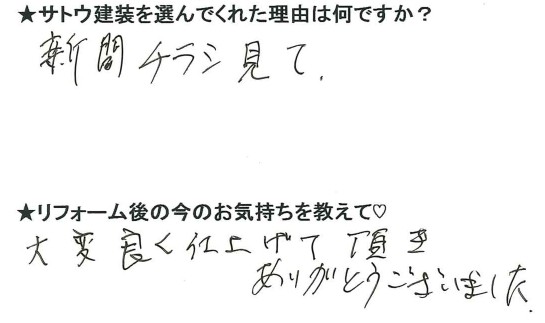 ★サトウ建装を選んでくれた理由は何ですか?
新聞チラシ見て.
★リフォーム後の今のお気持ちを教えて♡
大変良く仕上げて頂き
ありがとうございました.